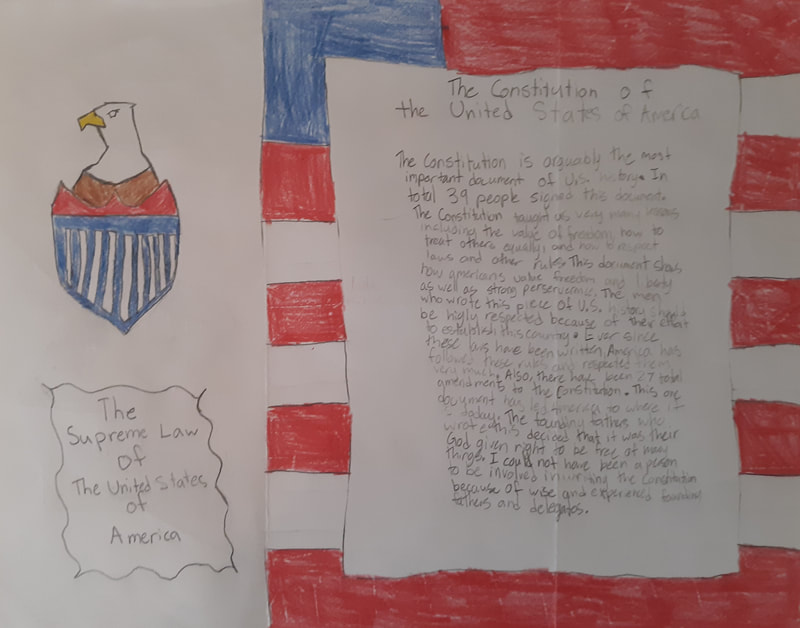 The Constitution of
the United States of America
The Constitution is arguably the most
important document of U.S. history. In
total 39 people signed this document.
The Constitution taught us very many
including the value of freedom, how to
treat others equally, and how to respect
laws and other rules. This document shows
how americans value freedom and liberty
as well as strong perserverance. The men
who wrote this piece of U.S. history should
be higly respected because of their effort
to establish this country. Ever since
these laws have been written, America has
followed these rules and respected them
very much. Also, there have been 27 total
amendments to the Constitution. This one
document has led America to where it
is today. The founding fathers who
wrote this decided that it was their
God given right to be free of many
things. I could not have been a person
to be involved in writing the Constitution
because of wise and experienced founding
fathers and delegates.
The
Supreme Law
of
The United States
of
America